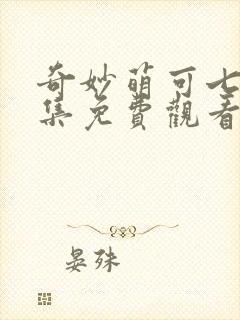 奇妙萌可七
集免費觀看
晏殊